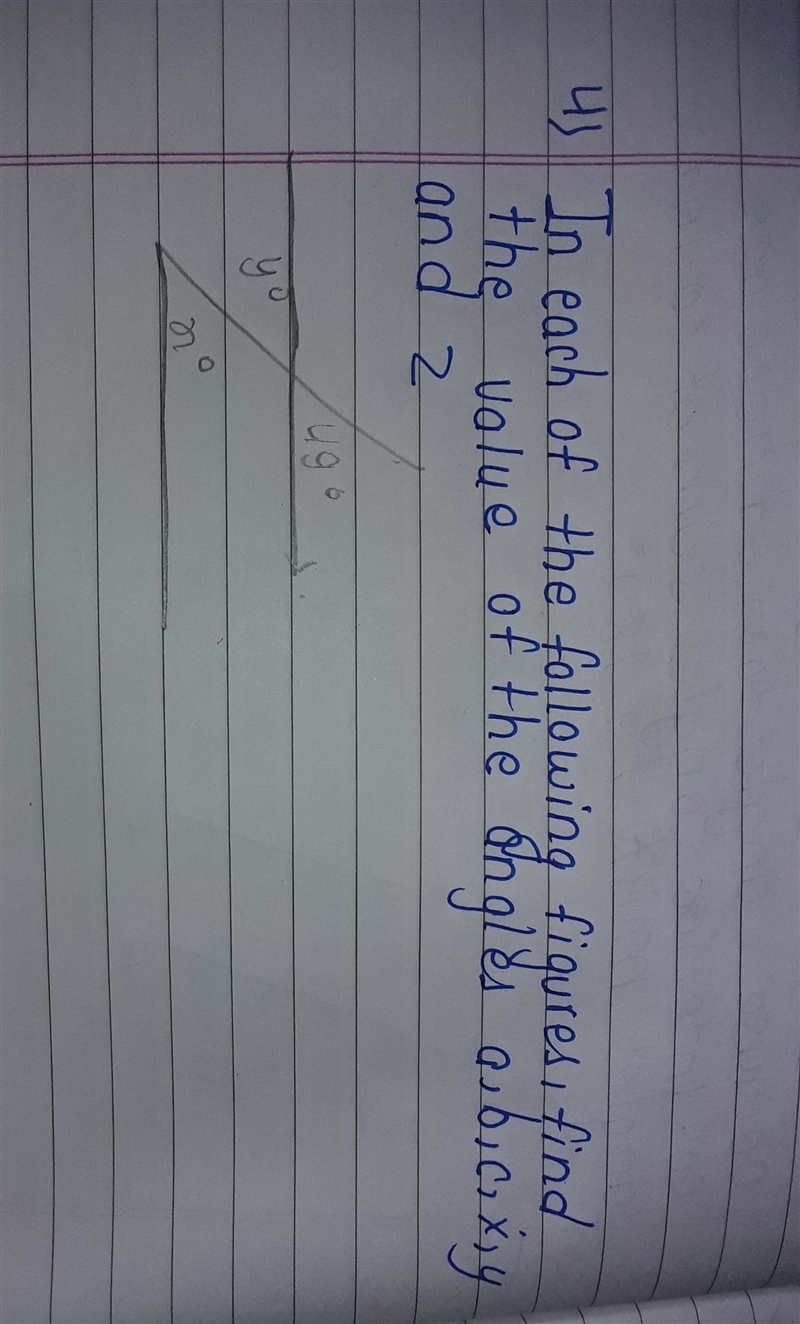 4) In each of the following figures, find
the value of the angles a, b, c, x, y
and z
49°
y°
x°